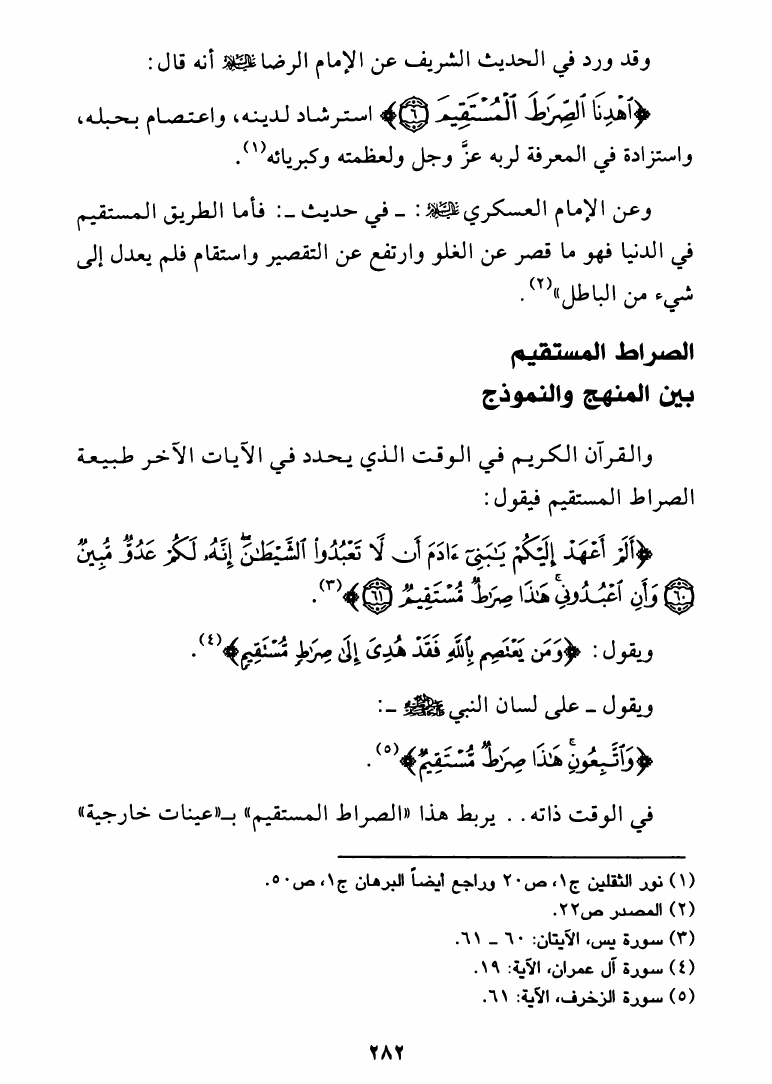 وقد ورد في الحديث الشريف عن الإمام الرضا عليه السلام أنه قال:
﴿ٱهْدِنَا ٱلصِّرَٰطَ ٱلْمُسْتَقِيمَ ٦﴾ استرشاد لدينه، واعتصام بحبله،
واستزادة في المعرفة لربه عزَّ وجل ولعظمته وكبريائه(١).
وعن الإمام العسكري عليه السلام: ـ في حديث ـ: فأما الطريق المستقيم
في الدنيا فهو ما قصر عن الغلو وارتفع عن التقصير واستقام فلم يعدل إلى
شيء من الباطل»(٢).
الصراط المستقيم
بين المنهج والنموذج
والقرآن الكريم في الوقت الذي يحدد في الآيات الآخر طبيعة
الصراط المستقيم فيقول:
﴿أَلَمْ أَعْهَدْ إِلَيْكُمْ يَٰبَنِىٓ ءَادَمَ أَن لَّا تَعْبُدُوا۟ ٱلشَّيْطَٰنَ ۖ إِنَّهُۥ لَكُمْ عَدُوٌّ مُّبِينٌ
٦٠ وَأَنِ ٱعْبُدُونِى ۚ هَٰذَا صِرَٰطٌ مُّسْتَقِيمٌ ٦١﴾(٣).
ويقول: ﴿وَمَن يَعْتَصِم بِٱللَّهِ فَقَدْ هُدِىَ إِلَىٰ صِرَٰطٍ مُّسْتَقِيمٍ﴾(٤).
ويقول ـ على لسان النبي صلى الله عليه وآله وسلم ـ:
﴿وَٱتَّبِعُونِ ۚ هَٰذَا صِرَٰطٌ مُّسْتَقِيمٌ﴾(٥).
في الوقت ذاته.. يربط هذا «الصراط المستقيم» بـ«عينات خارجية»
(١) نور الثقلين ج١، ص٢٠ وراجع أيضاً البرهان ج١، ص٥٠.
(٢) المصدر ص٢٢.
(٣) سورة يس، الآيتان: ٦٠ ـ ٦١.
(٤) سورة آل عمران، الآية: ١٩.
(٥) سورة الزخرف، الآية: ٦١.
٢٨٢